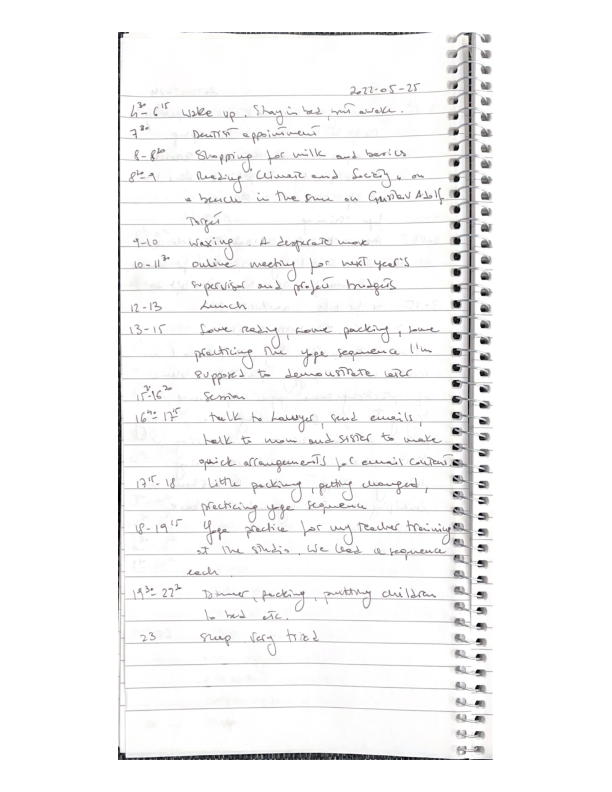 2022-05-25
4³⁰-6¹⁵ Wake up. Stay in bed, not awake.
7³⁰ Dentist appointment
8-8²⁰ Shopping for milk and berries
8²⁰-9 Reading "Climate and Society" on
a bench in the sun on Gustav Adolf
Torget
9-10 Waxing. A desperate move
10-11³⁰ online meeting for next year's
supervisor and project budgets
12-13 Lunch
13-15 Some reading, some packing, some
practicing the yoga sequence I'm
supposed to demonstrate later
15³⁰-16²⁰ Session
16⁴⁰-17¹⁵ talk to lawyer, send emails,
talk to mom and sister to make
quick arrangements for email content.
17¹⁵-18 Little packing, getting changed,
practicing yoga sequence
18-19¹⁵ Yoga practice for my teacher training
at the studio. We lead a sequence
each.
19³⁰-22³⁰ Dinner, packing, putting children
to bed etc.
23 Sleep very tried